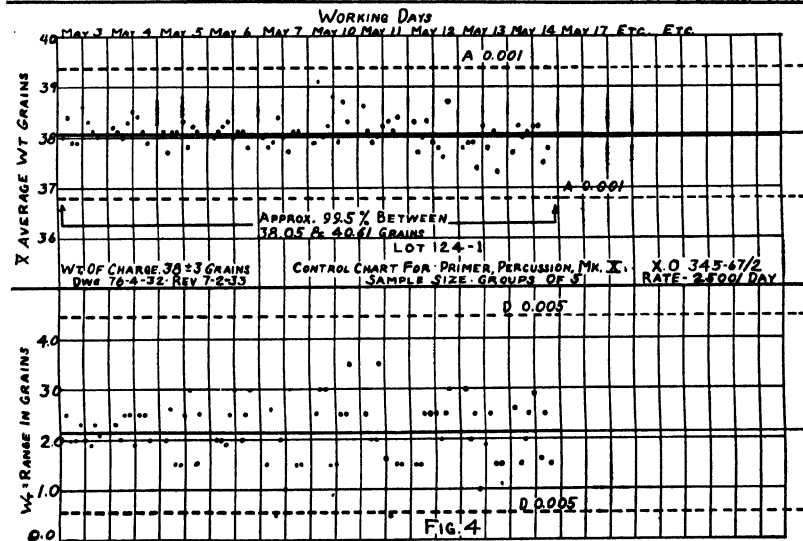 WORKING DAYS
MAY 3 MAY 4 MAY 5 MAY 6 MAY 7 MAY 10 MAY 11 MAY 12 MAY 13 MAY 14 MAY 17 ETC. ETC.
X̄ AVERAGE WT GRAINS
40
39
38
37
36
A 0.001
A 0.001
APPROX. 99.5% BETWEEN
38.05 & 40.61 GRAINS
LOT 124-1
WT OF CHARGE, 38 ±3 GRAINS
DWG 76-4-32. REV 7-2-33
CONTROL CHART FOR PRIMER, PERCUSSION, MK. X.
SAMPLE SIZE. GROUPS OF 5
X.O 345-67/2
RATE- 2500/ DAY
RANGE IN GRAINS
3.0
2.0
1.0
0.0
D 0.005
D 0.005
FIG. 4